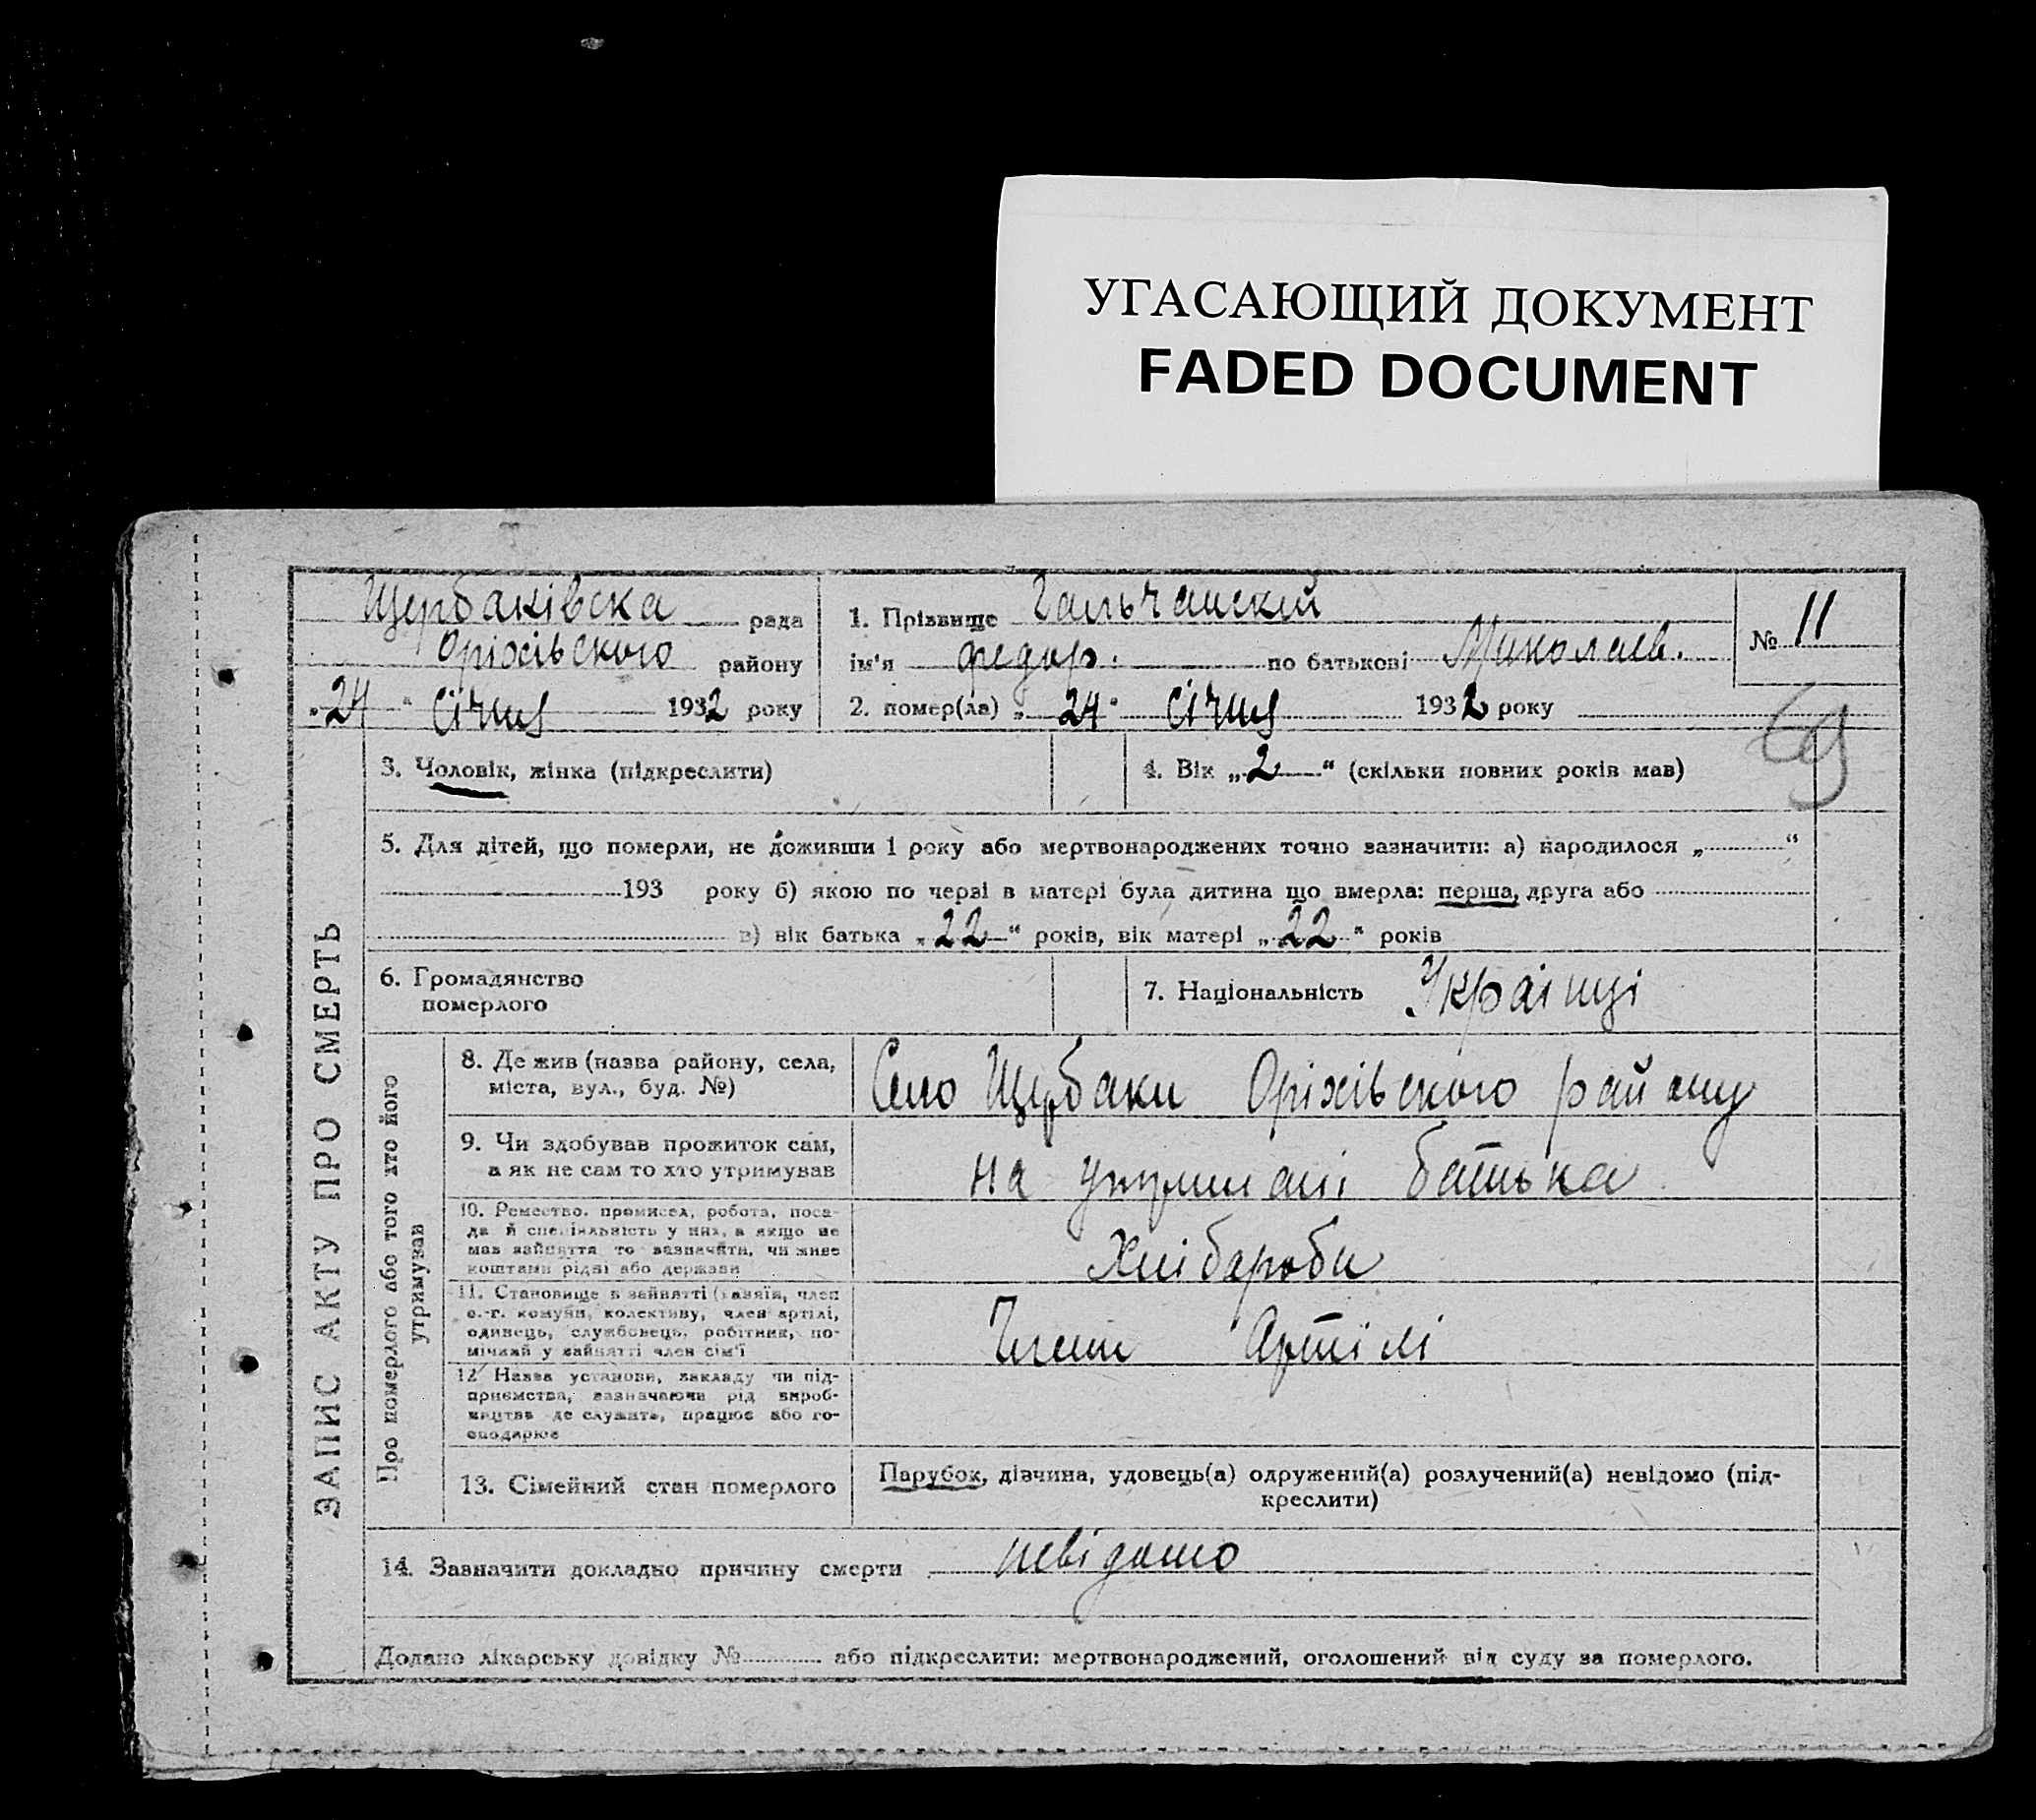 УГАСАЮЩИЙ ДОКУМЕНТ
FADED DOCUMENT
Щербаківска рада
Оріхівського району
„24“ Січня 1932 року
1. Прізвище Гальчанскій
ім'я Федор. по батькові Миколаєв.
2. помер(ла) „24“ Січня 1932 року
№ 11
ЗАПИС АКТУ ПРО СМЕРТЬ
3. Чоловік, жінка (підкреслити)
4. Вік „2“ (скільки повних років мав)
5. Для дітей, що померли, не доживши 1 року або мертвонароджених точно зазначити: а) народилося „ “
193 року б) якою по черзі в матері була дитина що вмерла: перша, друга або
в) вік батька „22“ років, вік матері „22“ років
6. Громадянство
померлого
7. Національність Українці
Про померлого або того хто його
утримував
8. Де жив (назва району, села,
міста, вул., буд. №)
Село Щербаки Оріхівського району
9. Чи здобував прожиток сам,
а як не сам то хто утримував
на утриманні батька
10. Ремество, промисел, робота, поса-
да й спеціяльність у них, а якщо не
мав зайняття то зазначити, чи живе
коштами рідні або держави
Хлібароби
11. Становище в зайнятті (хазяїн, член
с.-г. комуни, колективу, член артілі,
одинець, службовець, робітник, по-
мічний у зайнятті член сім'ї
Члени Артілі
12 Назва установи, закладу чи під-
приємства, зазначаючи рід вироб-
ництва де служить, працює або го-
сподарює
13. Сімейний стан померлого
Парубок, дівчина, удовець(а) одружений(а) розлучений(а) невідомо (під-
креслити)
14. Зазначити докладно причину смерти невідомо
Додано лікарську довідку № або підкреслити: мертвонароджений, оголошений від суду за померлого.